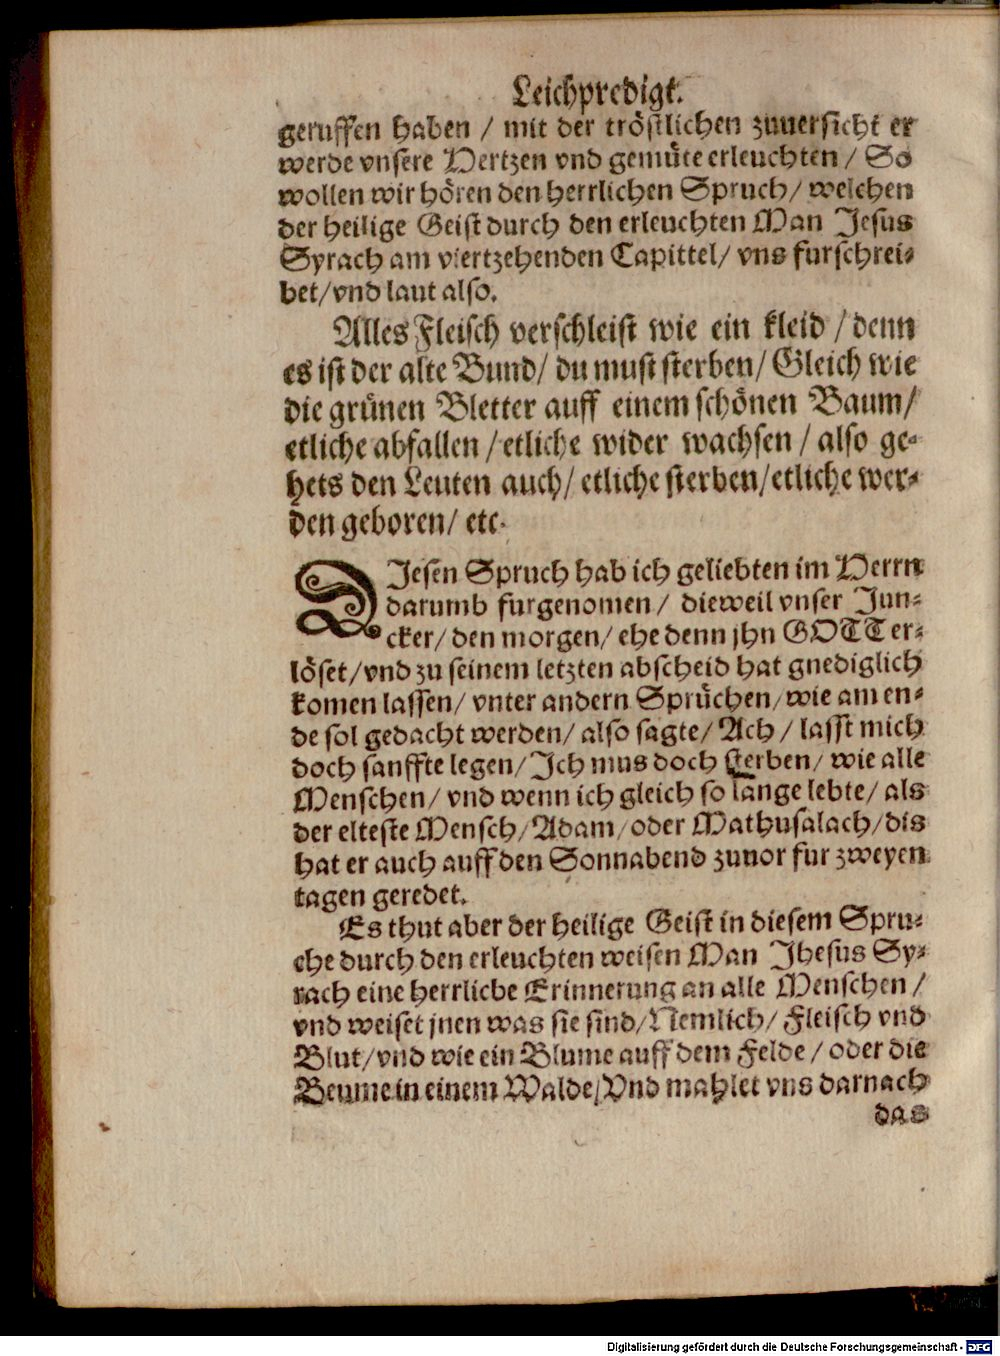 Leichpredigt.
geruffen haben / mit der tröstlichen zuuersicht er
werde vnsere Hertzen vnd gemüte erleuchten / So
wollen wir hören den herrlichen Spruch / welchen
der heilige Geist durch den erleuchten Man Jesus
Syrach am viertzehenden Capittel / vns furschrei-
bet / vnd laut also.
Alles Fleisch verschleist wie ein kleid / denn
es ist der alte Bund / du must sterben / Gleich wie
die grünen Bletter auff einem schönen Baum /
etliche abfallen / etliche wider wachsen / also ge-
hets den Leuten auch / etliche sterben / etliche wer-
den geboren / etc.
DJesen Spruch hab ich geliebten im Herrn
darumb furgenomen / dieweil vnser Jun-
cker / den morgen / ehe denn jhn GOTT er-
löset / vnd zu seinem letzten abscheid hat gnediglich
komen lassen / vnter andern Sprüchen / wie am en-
de sol gedacht werden / also sagte / Ach / lasst mich
doch sanffte legen / Jch mus doch sterben / wie alle
Menschen / vnd wenn ich gleich so lange lebte / als
der elteste Mensch / Adam / oder Mathusalach / dis
hat er auch auff den Sonnabend zuuor fur zweyen
tagen geredet.
Es thut aber der heilige Geist in diesem Spru-
che durch den erleuchten weisen Man Jhesus Sy-
rach eine herrliche Erinnerung an alle Menschen /
vnd weiset jnen was sie sind / Nemlich / Fleisch vnd
Blut / vnd wie ein Blume auff dem Felde / oder die
Beume in einem Walde / Vnd mahlet vns darnach
das
Digitalisierung gefördert durch die Deutsche Forschungsgemeinschaft - DFG